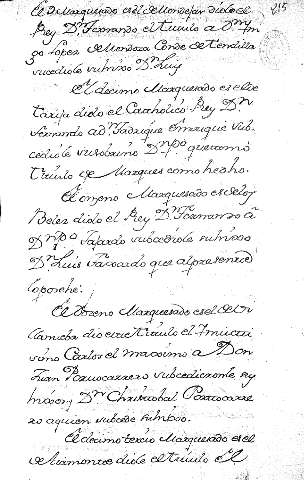 215
El Marquesado es el de Mondejar diole el
Rey Dn Fernando el titulo a Dn Iñi
go Lopez de Mendoza Conde de Tendilla
subcediole su hixo Dn Luis
El decimo Marquesado es el de
tarifa diole el Catholico Rey Dn
fernando a Dn fadrique Enrriquez sub
cediole su sobrino Dn Po que tomo
titulo de Marques como hesho.
El onzeno Marquesado es de los
Belez diole el Rey Dn Fernando a
Dn Po faxardo subcediole su hixo
Dn Luis faxardo que al presente
lo poshe.
El dozeno Marquesado es el de Vi
llanueba dio este titulo el Imuictri
simo Carlos el maximo a Don
Juan Portocarrero subcedieronle sus
hixos, Dn Christobal Portocarre
ro a quien subcede su hixo.
El decimo tercio Marquesado es el
de Aiamonte diole el titulo el